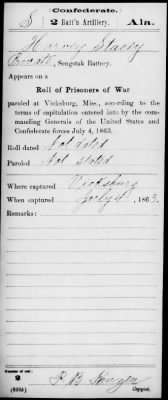 Confederate.
S 2 Batt'n Artillery. Ala.
Harvey Stacey
Private, Sengstak Battery.
Appears on a
Roll of Prisoners of War
paroled at Vicksburg, Miss., according to the
terms of capitulation entered into by the com-
manding Generals of the United States and
Confederate forces July 4, 1863.
Roll dated Not dated
Paroled Not stated
Where captured Vicksburg
When captured July 4, 1863.
Remarks:
Number of roll:
2
Copyist.